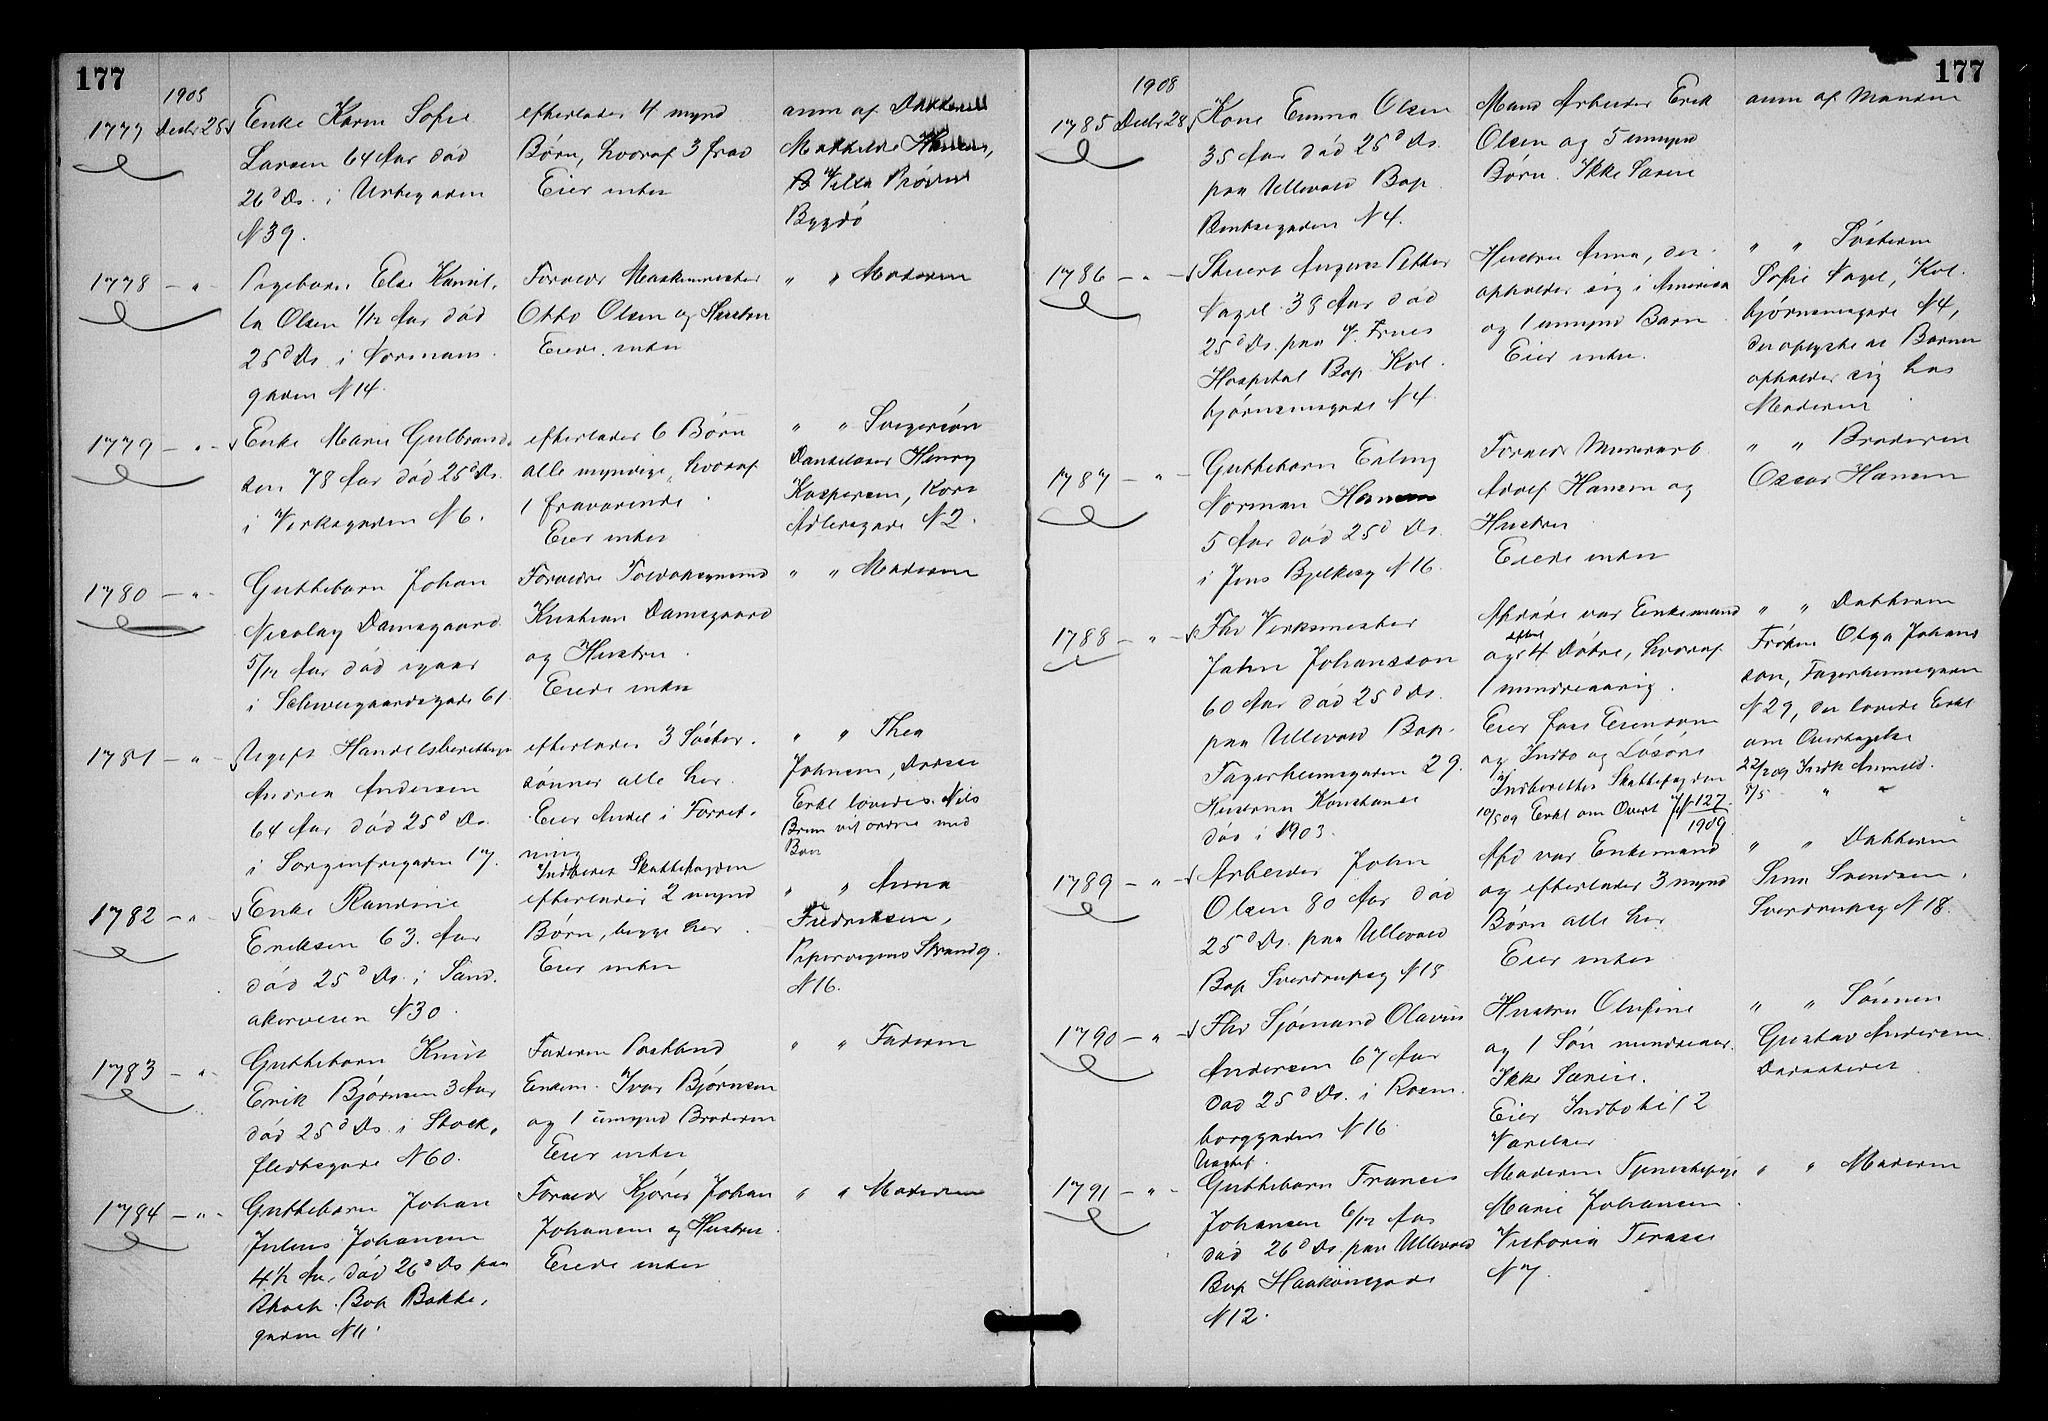 177
1908
1777 Decbr 28
Enke Karen Sofie
Larsen 64 Aar död
26d Ds. i Urtegaden
N 39.
efterlader 4 mynd
Börn, hvoraf 3 frav
Eier intet
anm af Datteren
Mathilde
Villa
Bygdö
1778 - " -
Pigebarn Else Kamil-
la Olsen 1/12 Aar död
25d Ds. i Normans-
gaden N 14.
Foreldr Maskinmester
Otto Olsen og Hustru
Eiede intet
" " Moderen
1779 - " -
Enke Marie Gulbrand-
sen 78 Aar död 25d Ds.
i Verksgaden N 6.
efterlader 6 Börn
alle myndige, hvoraf
1 fraværende
Eier intet
" " Svigersön
Henry
Kaspersen, Kort
Adlersgade N 2.
1780 - " -
Guttebarn Johan
Nicolay Damsgaard
5/12 Aar död igaar
i Schweigaardsgade 61.
Foreldre
Kristian Damsgaard
og Hustru.
Eiede intet
" " Moderen
1781 - " -
Ugift Handelsberettiget
Andrea Andersen
64 Aar död 25d Ds.
i Sorgenfrigaden 17.
efterlader 3 Söster-
sönner alle her.
Eier Andel i Forret-
ning
Indberet Skattefogden
" " Thea
Johnsen,
Erkl lovedes. Nils
Brun vil ordne med
Boet
1782 - " -
Enke Randine
Eriksen 63. Aar
död 25d Ds. i Sand-
akerveien N 30.
efterlader 2 mynd
Börn, begge her.
Eier intet
" " Anna
Fredriksen,
Pipervigens Strandg.
N 16.
1783 - " -
Guttebarn Knut
Erik Björnsen 3 Aar
död 25d Ds. i Stock-
fledtsgade N 60.
Faderen Postbud
Enkem. Ivar Björnsen
og 1 umynd Broderen
Eier intet
" " Faderen
1784 - " -
Guttebarn Johan
Julius Johansen
4½ Aar, död 26d Ds paa
Rhosp. Bop Bakke-
gaden N 11.
Foreldr Kjörer Johan
Johansen og Hustru.
Eiede intet
" " Moderen
177
1908
1785 Decbr 28
Kone Emma Olsen
35 Aar död 25d Ds.
paa Ullevaal Bop.
Bentsegaden N 4.
Mand Arbeider Erik
Olsen og 5 umynd
Börn. Ikke Særeie
anm af Manden
1786 - " -
Stuert August Petter
Nagel 38 Aar död
25d Ds. paa V. Frues
Hospital Bop. Kol-
björnsensgade N 4.
Hustru Anna, der
opholder sig i Amerika
og 1 umynd Barn
Eier intet.
" " Söstern
Sofie Nagel, Kol-
björnsensgade N 4,
der oplyste at Barnet
opholder sig hos
Moderen
1787 - " -
Guttebarn Erling
Norman Hansen
5 Aar död 25d Ds.
i Jens Bjelkesg N 16.
Foreldr Murerarb
Adolf Hansen og
Hustru
Eiede intet
" " Broderen
Oscar Hansen
1788 - " -
Fhv Verksmester
John Johansson
60 Aar död 25d Ds.
paa Ullevaal Bop.
Fagerheimsgaden 29.
Hustruen Konstanse
död i 1903.
Afdöde var Enkemand
og efterl 4 Dötre, hvoraf
1 mindreaarig.
Eier fast Eiendom
og Indbo og Lösöre
Indberettes Skattefogden
10/5 09 Erkl om Overt Jf 127/1909
" " Datteren
Fröken Olga Johans
son, Fagerheimsgaden
N 29, der lovede Erkl
om Overtagelse
22/2 09 Indk Anmeld.
5/5 " "
1789 - " -
Arbeider John
Olsen 80 Aar död
25d Ds. paa Ullevaal
Bop Sverdrupsg N 18
Afd var Enkemand
og efterlader 3 mynd
Börn alle her.
Eier intet
" " Datteren
Lina Svendsen,
Sverdrupsg N 18.
1790 - " -
Fhv Sjömand Olavus
Andersen 67 Aar
död 25d Ds. i Rosen-
borggaden N 16
Hustru Olufine
og 1 Sön mindreaar.
Ikke Særeie.
Eier Indbo til 2
Værelser
" " Sönnen
Gustav Andersen.
Dersteds
1791 - " -
Uægtef.
Guttebarn Francis
Johansen 6/12 Aar
död 26d Ds. paa Ullevaal
Bop Haakonsgade
N 12.
Moderen Tjenestepige
Marie Johansen.
Victoria Terasse
N 7.
" " Moderen